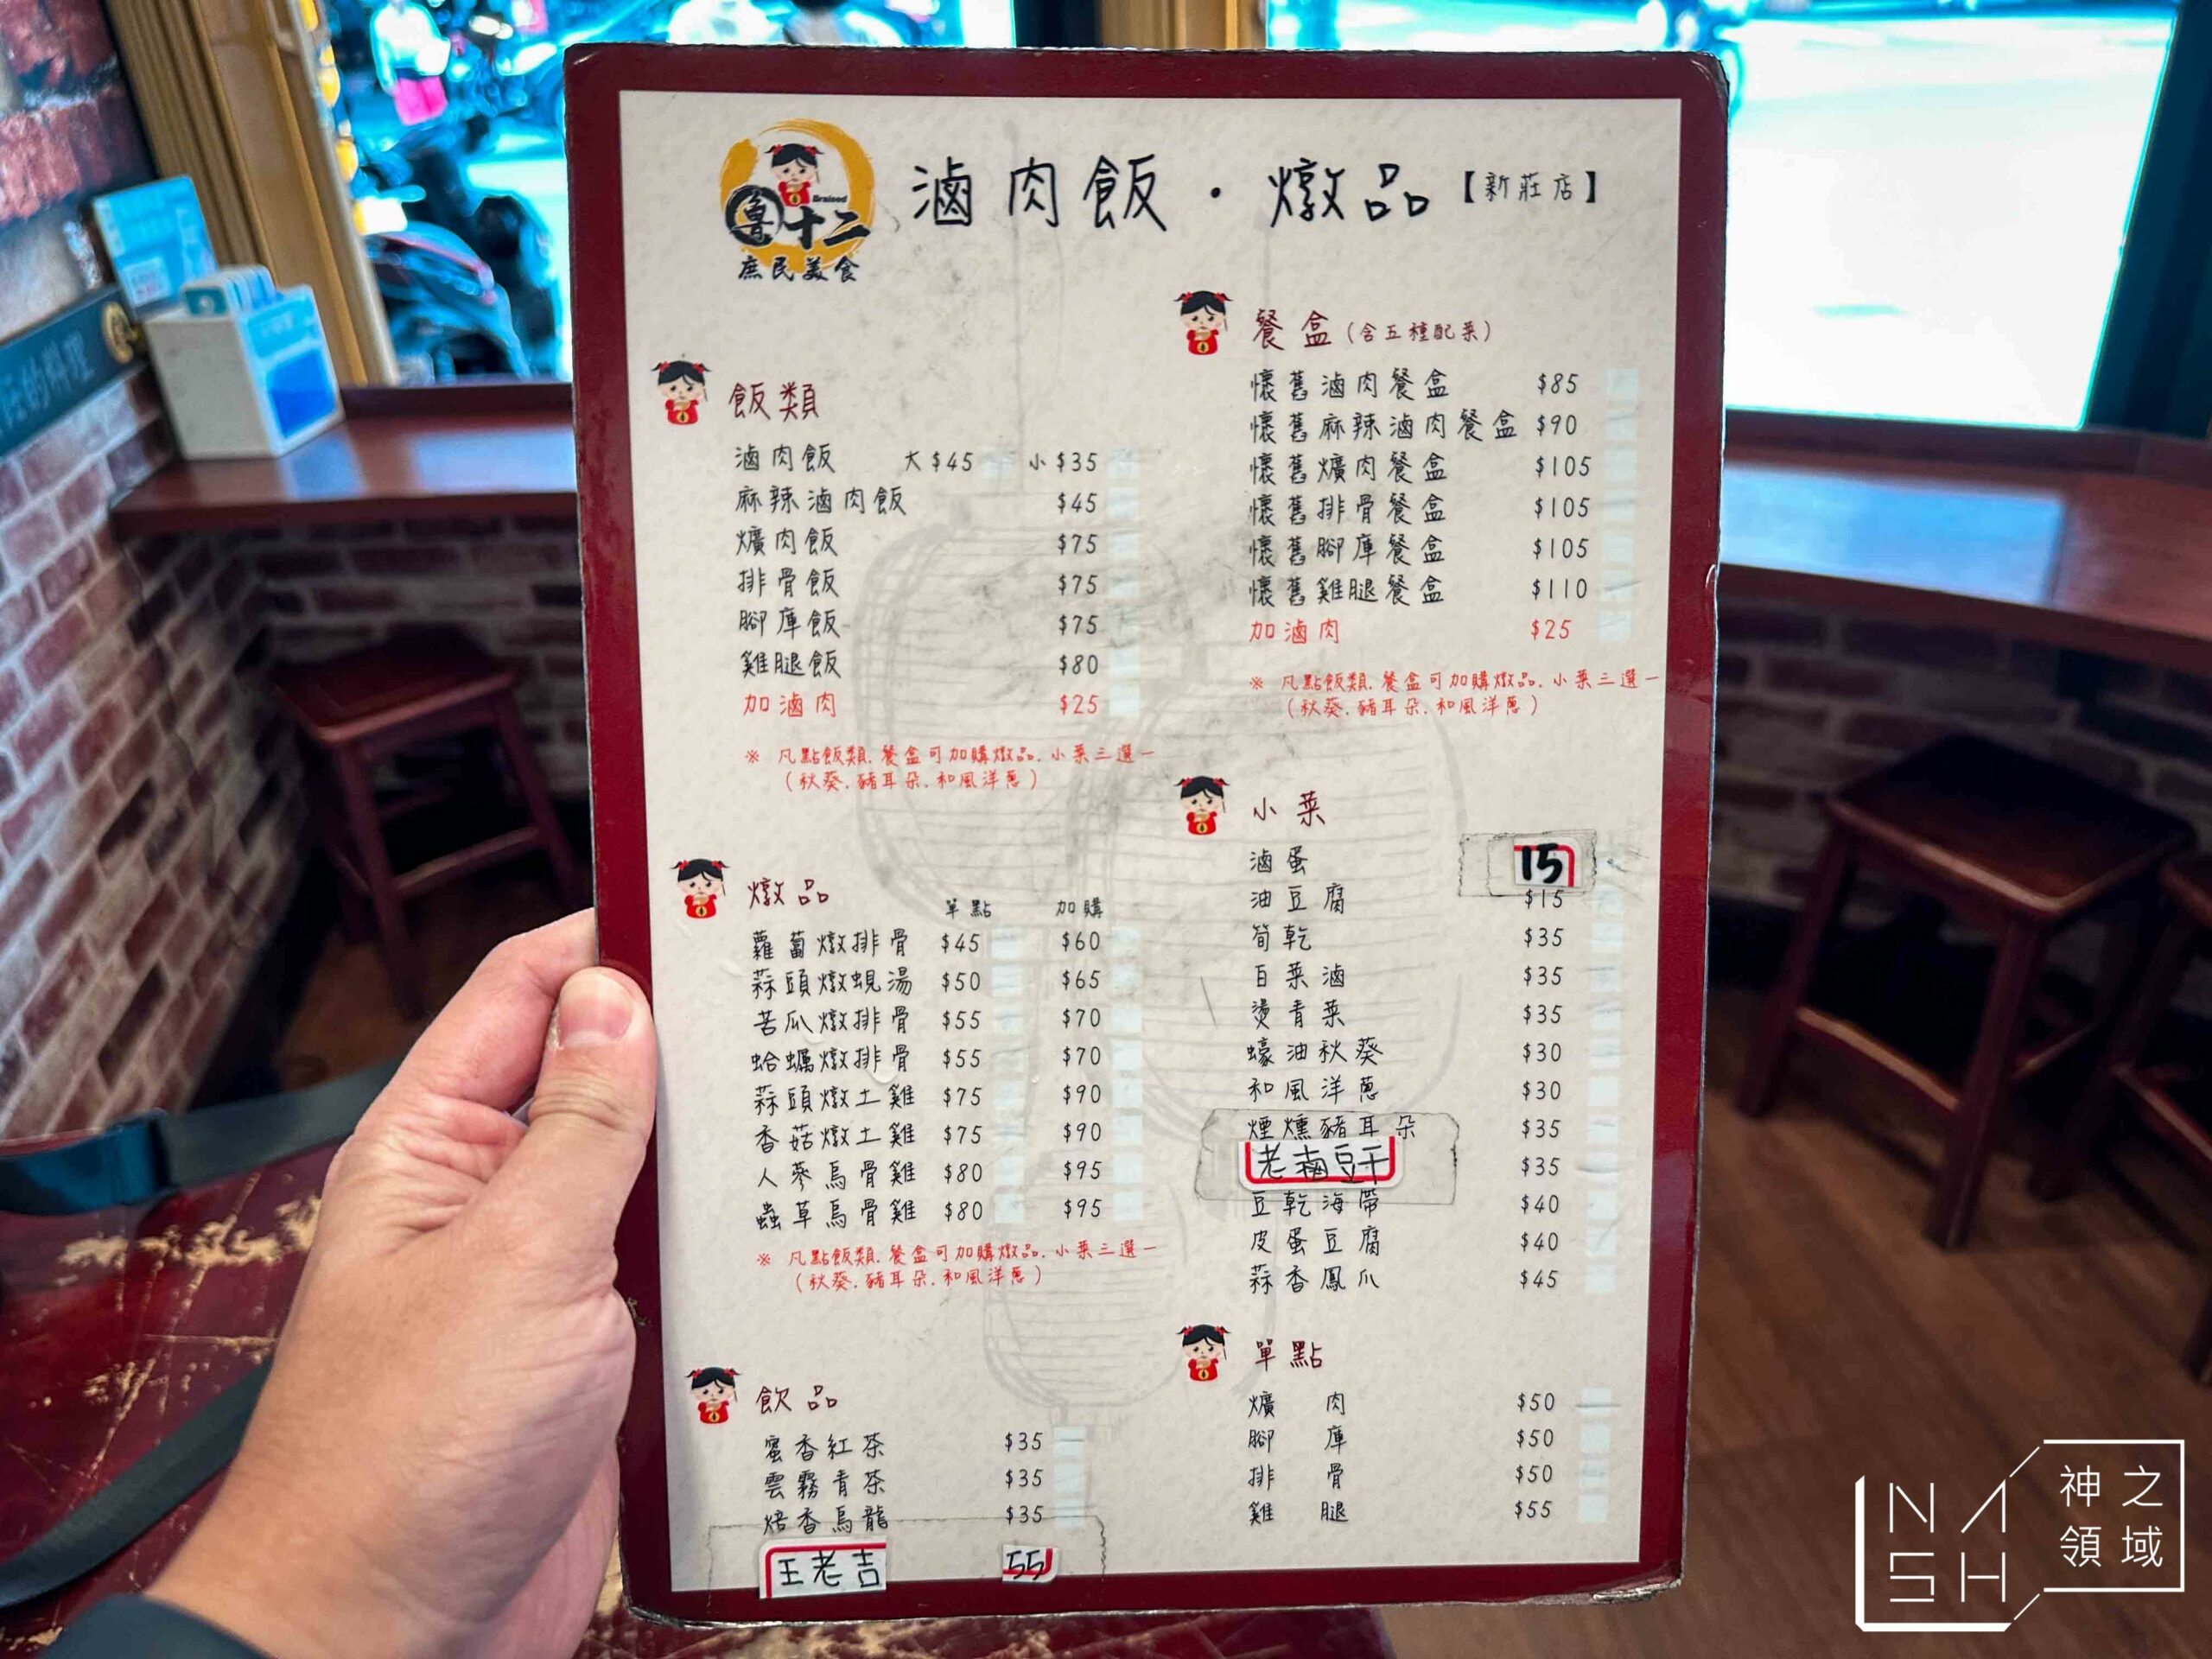 魯十二
Braised
庶民美食
滷肉飯・燉品【新莊店】
飯類
滷肉飯 大$45 小$35
麻辣滷肉飯 $45
爌肉飯 $75
排骨飯 $75
腳庫飯 $75
雞腿飯 $80
加滷肉 $25
※ 凡點飯類.餐盒可加購燉品.小菜三選一
(秋葵.豬耳朵.和風洋蔥)
燉品 單點 加購
蘿蔔燉排骨 $45 $60
蒜頭燉蜆湯 $50 $65
苦瓜燉排骨 $55 $70
蛤蠣燉排骨 $55 $70
蒜頭燉土雞 $75 $90
香菇燉土雞 $75 $90
人蔘烏骨雞 $80 $95
蟲草烏骨雞 $80 $95
※ 凡點飯類.餐盒可加購燉品.小菜三選一
(秋葵.豬耳朵.和風洋蔥)
飲品
蜜香紅茶 $35
雲霧青茶 $35
焙香烏龍 $35
王老吉 55
餐盒(含五種配菜)
懷舊滷肉餐盒 $85
懷舊麻辣滷肉餐盒 $90
懷舊爌肉餐盒 $105
懷舊排骨餐盒 $105
懷舊腳庫餐盒 $105
懷舊雞腿餐盒 $110
加滷肉 $25
※ 凡點飯類.餐盒可加購燉品.小菜三選一
(秋葵.豬耳朵.和風洋蔥)
小菜
滷蛋 15
油豆腐 $15
筍乾 $35
白菜滷 $35
燙青菜 $35
蠔油秋葵 $30
和風洋蔥 $30
煙燻豬耳朵 $35
老滷豆干 $35
豆乾海帶 $40
皮蛋豆腐 $40
蒜香鳳爪 $45
單點
爌肉 $50
腳庫 $50
排骨 $50
雞腿 $55
的料理
NASH
神之領域